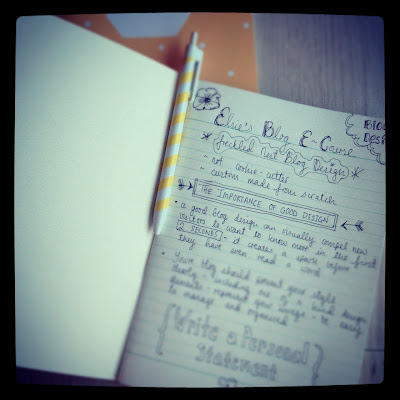 BLOG
DESI
Elsie's Blog E-Course
Freckled Nest Blog Design
- not cookie-cutter
- custom made from scratch
THE IMPORTANCE OF GOOD DESIGN
• a good blog design can visually compel new
visitors to want to know more in the first
2 SECONDS - it creates a before
they have even read a word
• Your blog should your style
clearly - including one of a kind design
elements - represent your image - be easy
to manage and organized
{Write a Personal
Statement}